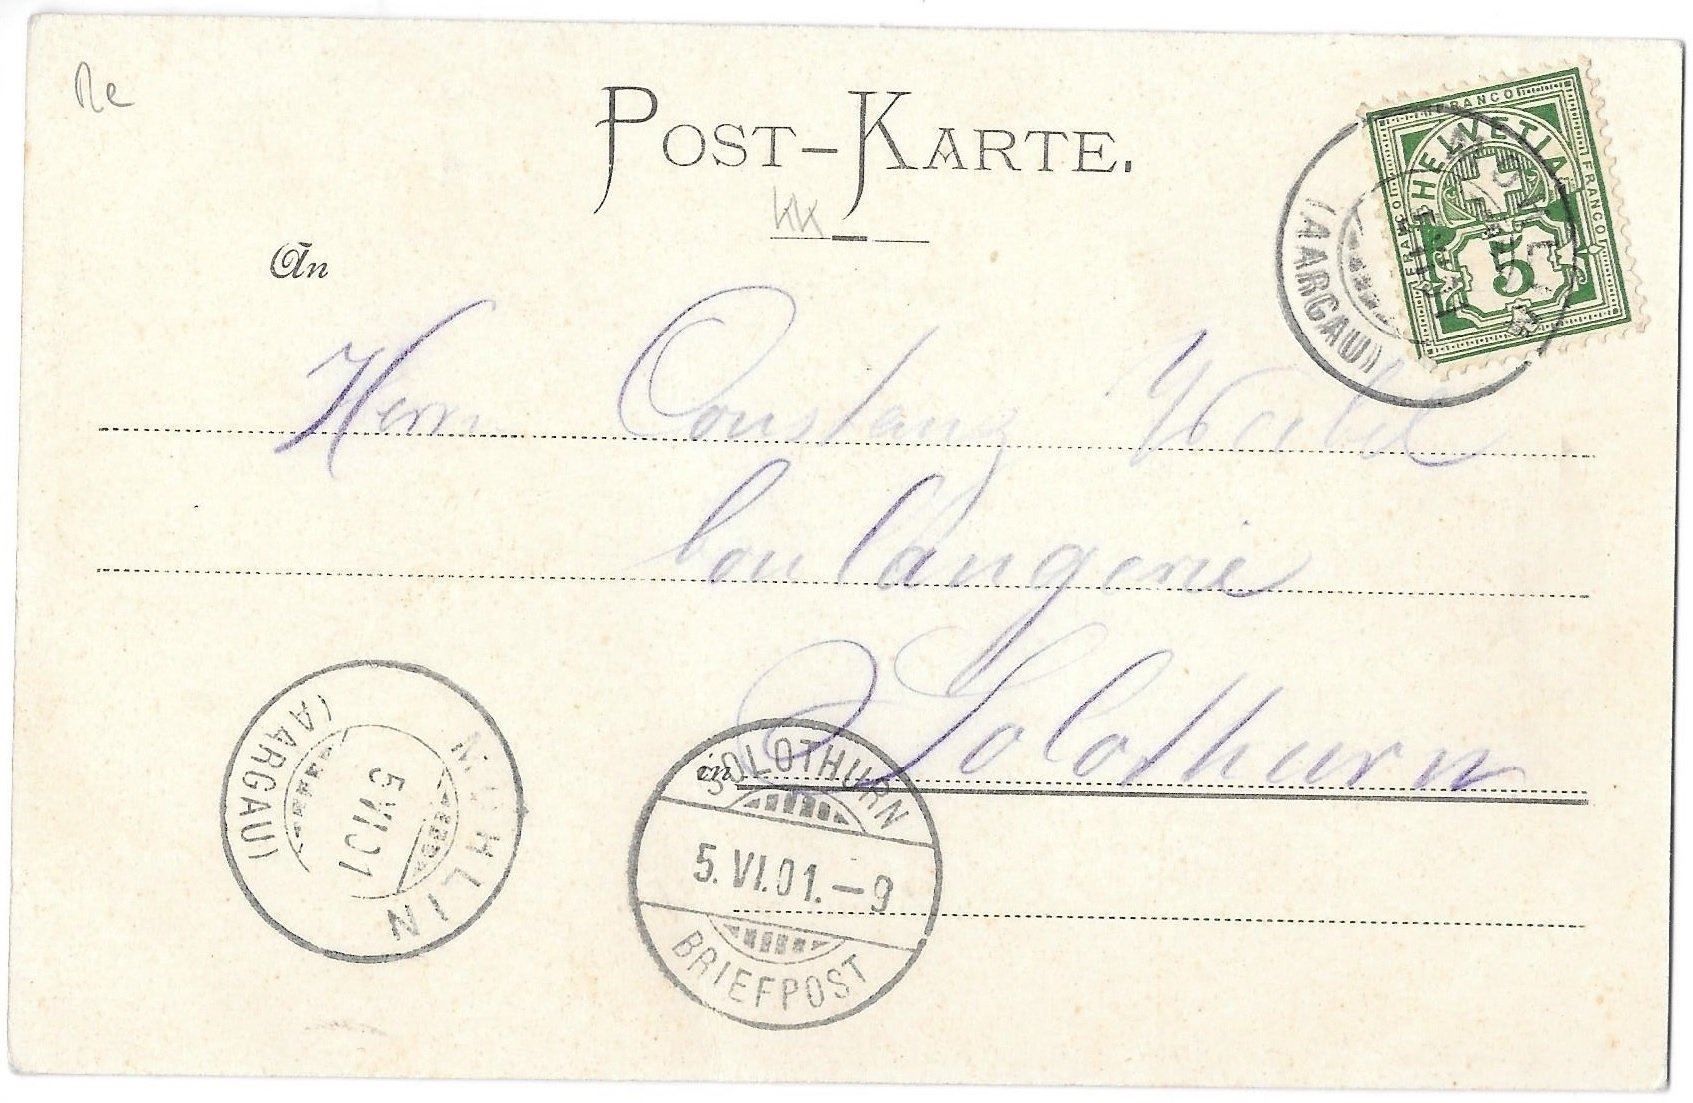 Re
POST-KARTE.
FRANCO
HELVETIA
FRANCO
FRANCO
5
(AARGAU)
An
Herrn Constanz Weibel
boulangerie
Solothurn
in
SOLOTHURN
5.VI.01.-9
BRIEFPOST
MÖHLIN
5 VI 01
(AARGAU)